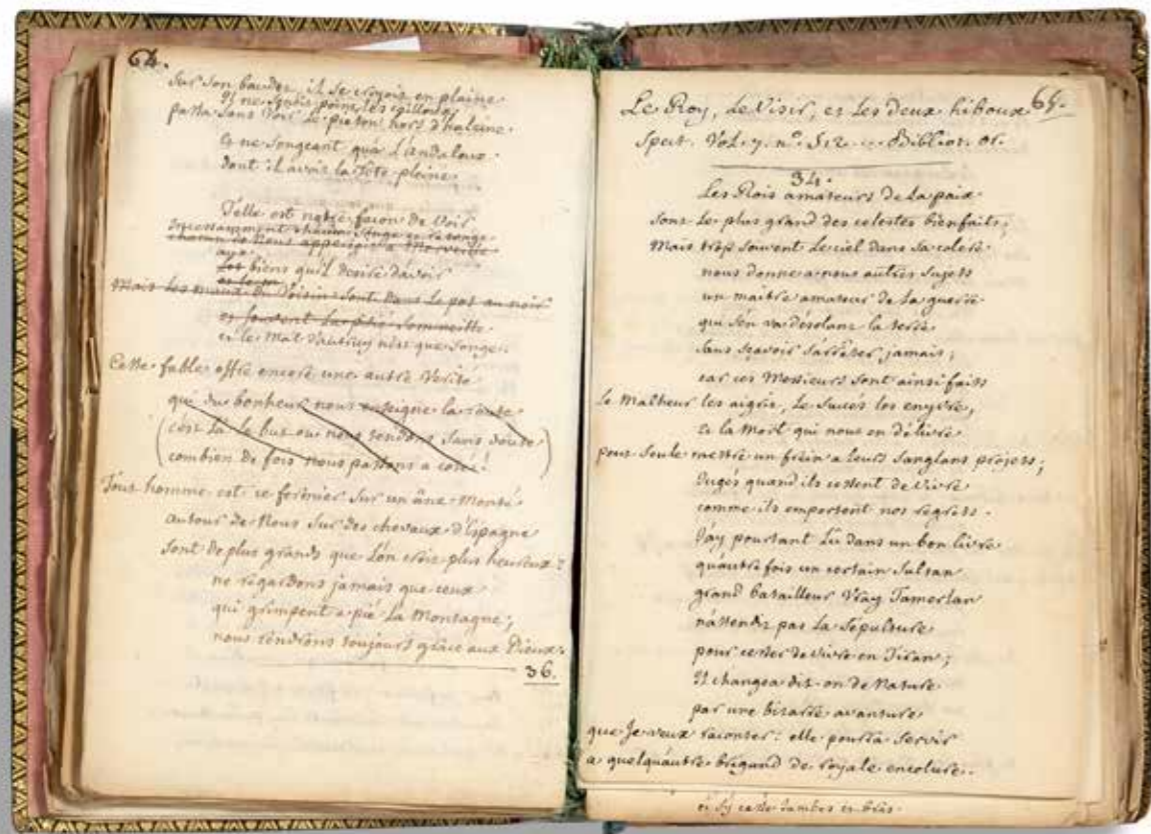 64.
sur son baudet il se croyoit en plaine
Il ne sentoit point les cailloux
passa sans voir le pieton hors d'haleine
et ne songeant qua L'andaloux
dont il avoit la tête pleine

Telle est notre façon de Voir
incessamment chacun songe
chacun de Nous apperçoit a merveille
aux
Les biens quil desire d'avoir
Mais les maux du Voisin sont dans le pot au noir
et souvent la pitié sommeille
et le Mal d'autruy n'est que songe.
Cette fable offre encore une autre Verité
qui du bonheur nous enseigne la route
(c'est la le but ou nous tendons sans doute
combien de fois nous passons a coté!)
Tout homme est ce fermier sur un âne monté
autour de Nous sur des chevaux d'Espagne
sont de plus grands que L'on croit plus heureux:
ne regardons jamais que ceux
qui grimpent a pié La Montagne;
nous rendrons toujours grâce aux Dieux.
36.
Le Roy, le Visir, et Les deux hiboux 65.
Spect. Vol. 7. n.º 512 Bibliot. or.
34.
Les Rois amateurs de la paix
sont Le plus grand des celestes bienfaits;
Mais trop souvent Le ciel dans sa colere
nous donne a nous autres Sujets
un maitre amateur de la guerre
qui s'en va désolant la terre
sans sçavoir s'arrêter jamais;
car ces Messieurs sont ainsi faits
le Malheur les aigrit, Le Succés les enyvre,
et la Mort qui nous en délivre
peut seule mettre un frein a leurs sanglans projets;
Jugés quand ils cessent de vivre
comme ils emportent nos regrets.
J'ay pourtant Lû dans un bon livre
qu'autre fois un certain Sultan
grand batailleur Vray Tamerlan
n'attendit pas La Sépulture
pour cesser de vivre en Tiran;
Il changea dit-on de Nature
par une bizarre avanture
que Je veux raconter: elle pourra servir
a quelqu'autre brigand de royale encolure.